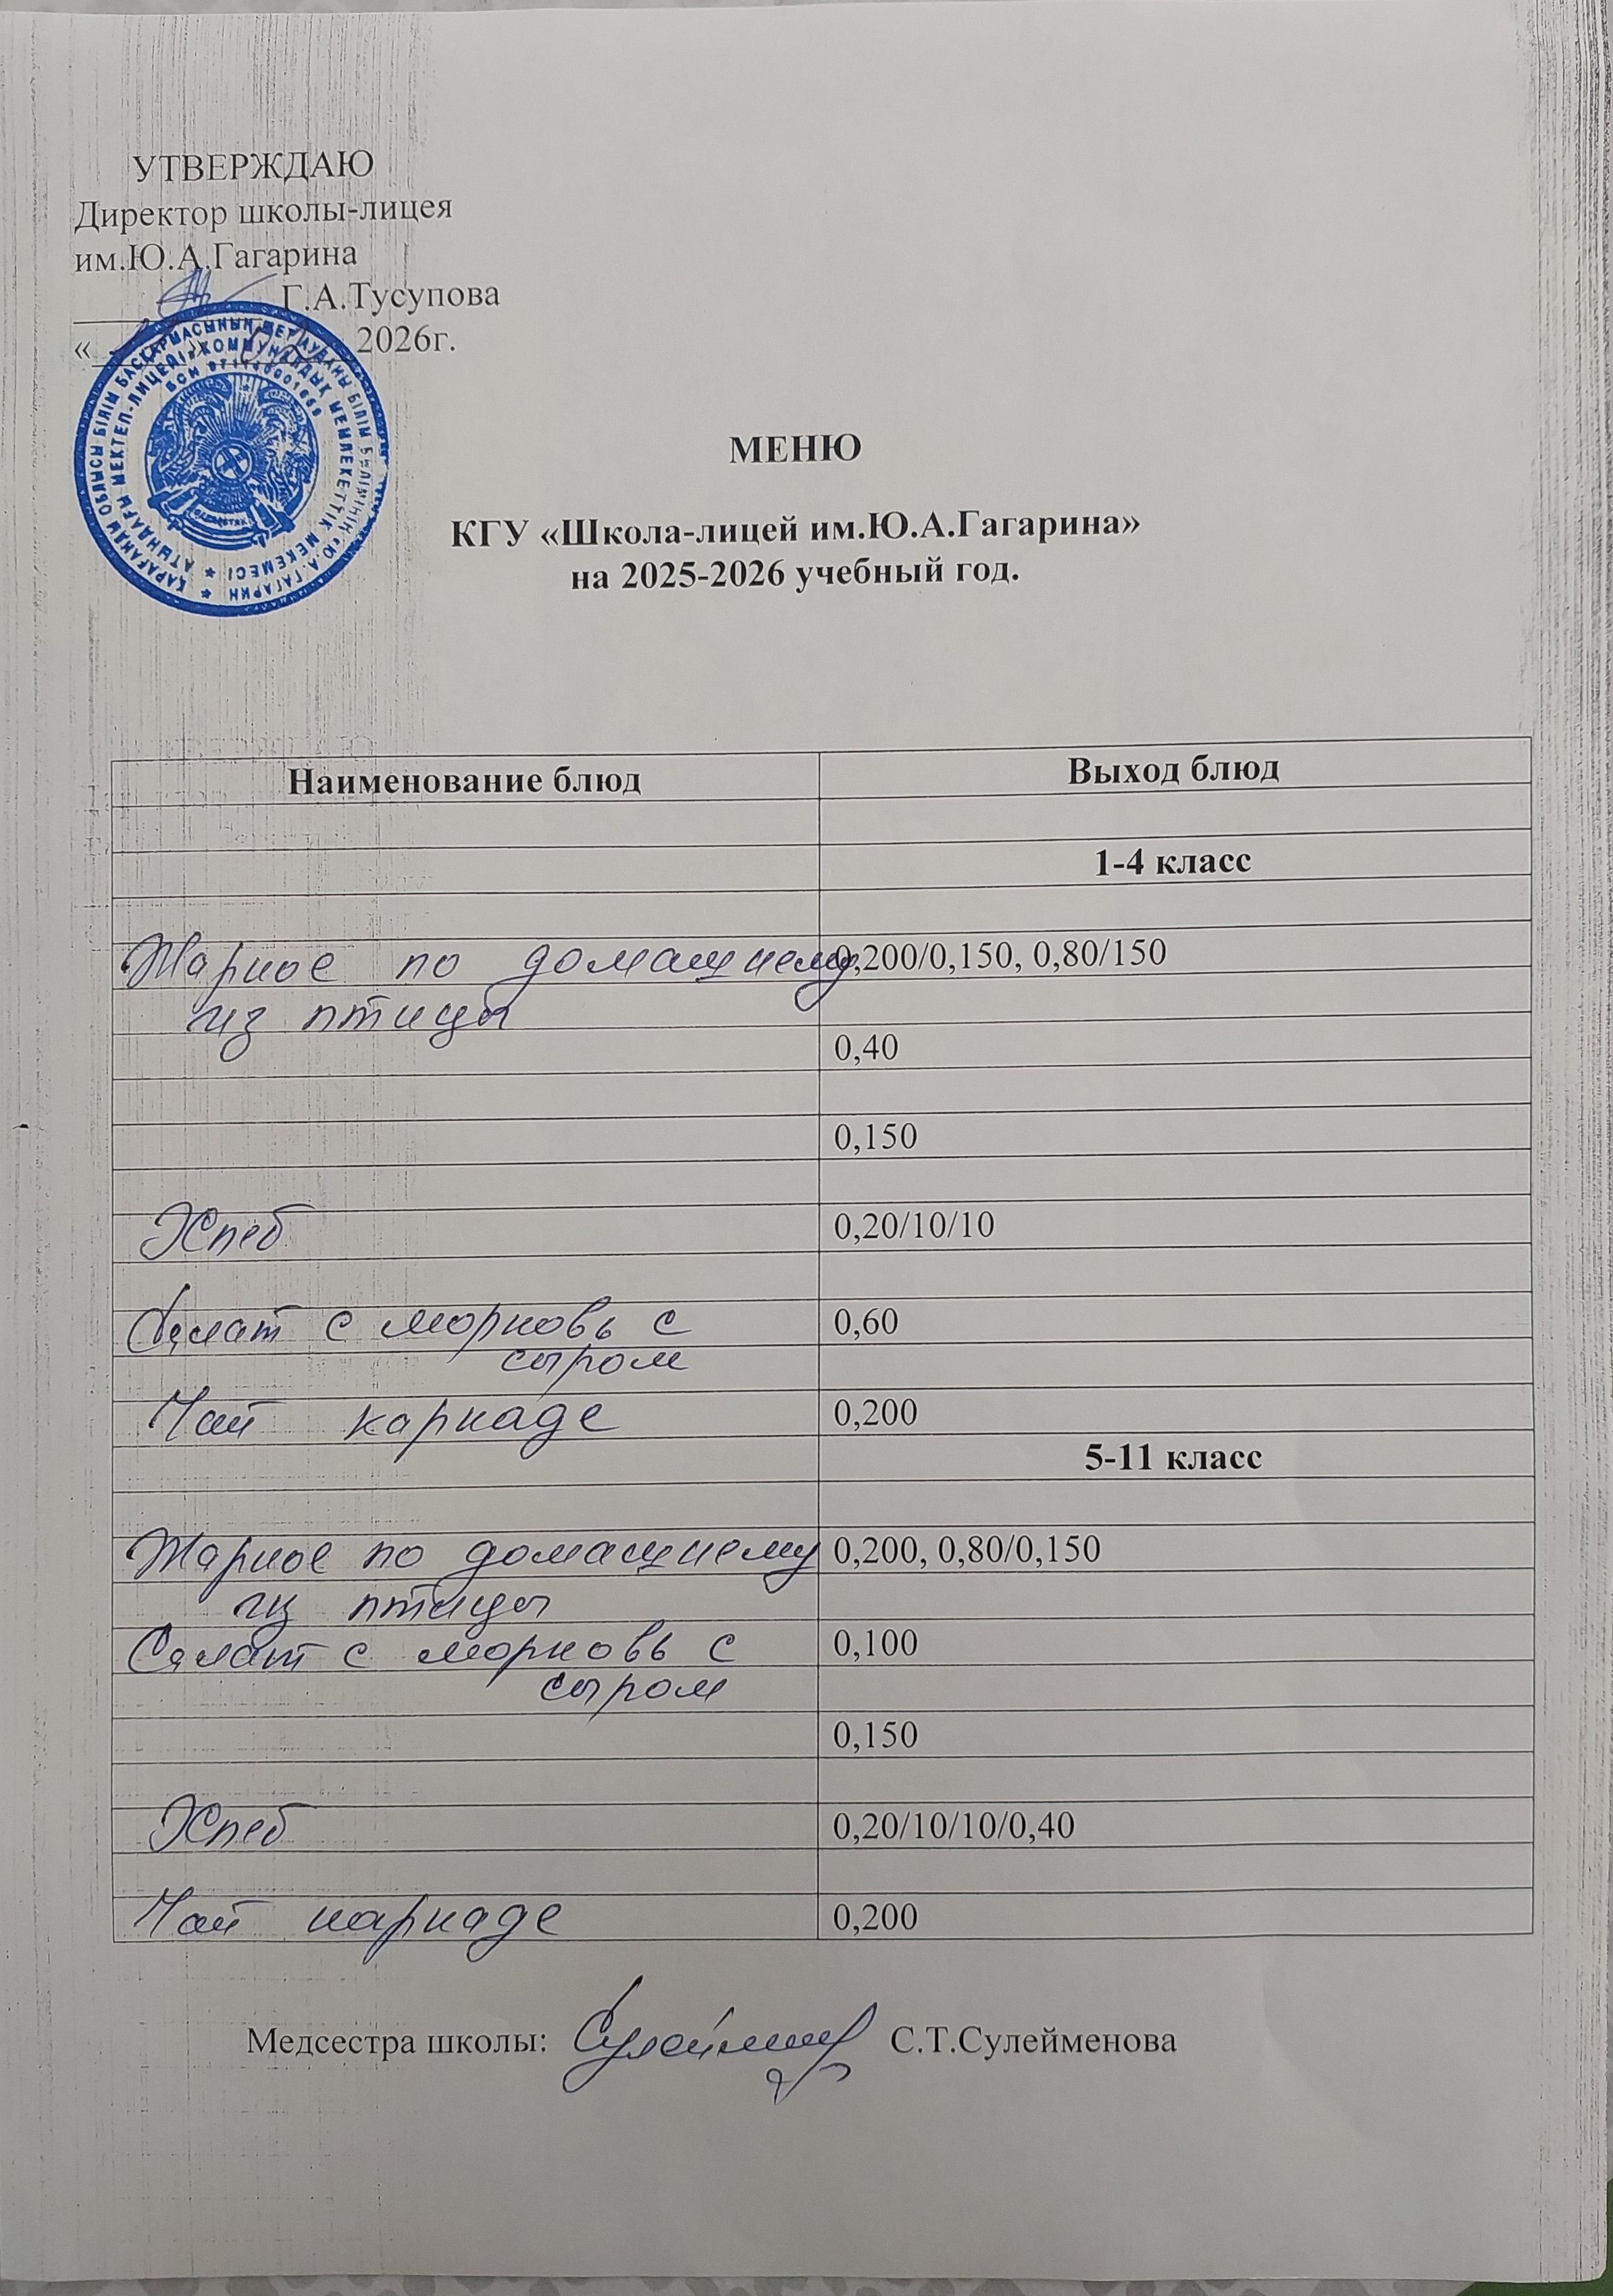 УТВЕРЖДАЮ
Директор школы-лицея
им.Ю.А.Гагарина
Г.А.Тусупова
« » 02 2026г.
ҚАРАҒАНДЫ ОБЛЫСЫ БІЛІМ БАСҚАРМАСЫНЫҢ ШЕТ АУДАНЫ БІЛІМ БӨЛІМІНІҢ «Ю.А.ГАГАРИН
АТЫНДАҒЫ МЕКТЕП-ЛИЦЕЙІ» КОММУНАЛДЫҚ МЕМЛЕКЕТТІК МЕКЕМЕСІ
БСН
МЕНЮ
КГУ «Школа-лицей им.Ю.А.Гагарина»
на 2025-2026 учебный год.
Наименование блюд Выход блюд
1-4 класс
Жаркое по домашнему 0,200/0,150, 0,80/150
из птицы
0,40
0,150
Хлеб 0,20/10/10
Салат с морковь с 0,60
сыром
Чай каркаде 0,200
5-11 класс
Жаркое по домашнему 0,200, 0,80/0,150
из птицы
Салат с морковь с 0,100
сыром
0,150
Хлеб 0,20/10/10/0,40
Чай каркаде 0,200
Медсестра школы: С.Т.Сулейменова